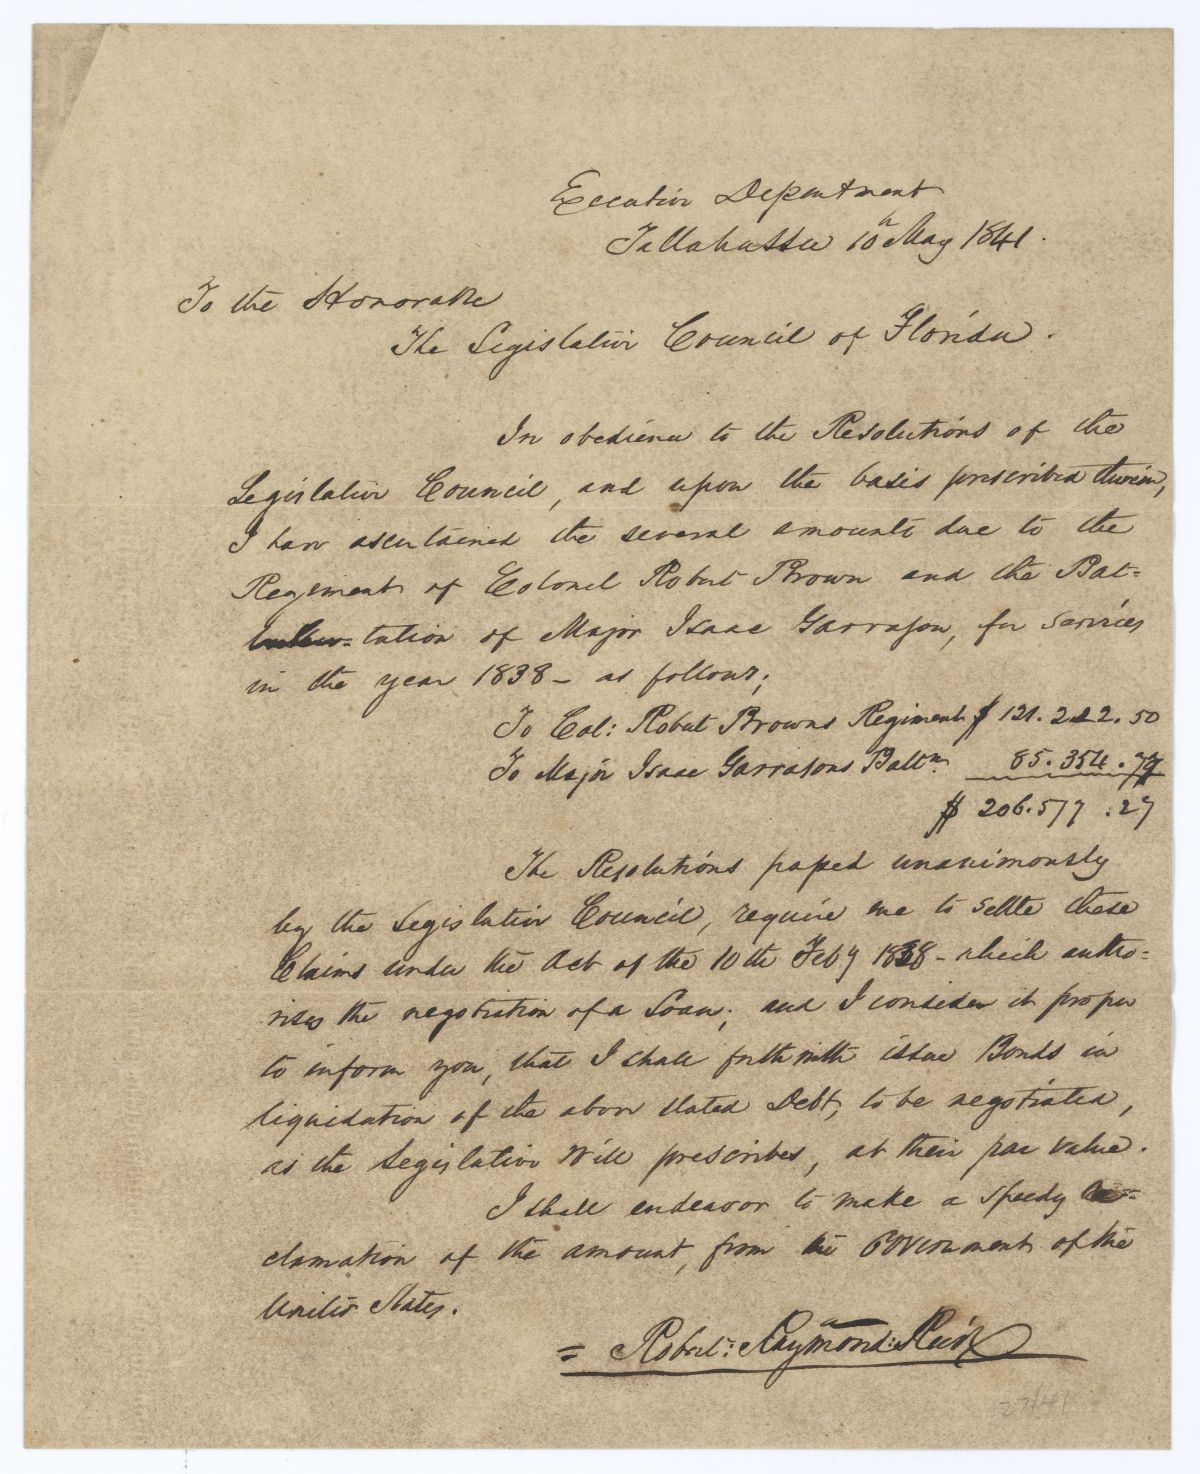 Executive Department
Tallahassee 10th May 1841.
To the Honorable
The Legislative Council of Florida.
In obedience to the Resolutions of the
Legislative Council, and upon the basis prescribed therein,
I have ascertained the several amounts due to the
Regiment of Colonel Robert Brown and the Bat-
tation of Major Isaac Garrason, for services
in the year 1838 – as follows;
To Col: Robert Browns Regiment $ 121.222.50
To Major Isaac Garrasons Battn. 85.354.77
$ 206.577.27
The Resolutions passed unanimously
by the Legislative Council, require me to settle these
Claims under the Act of the 10th Feby 1838 – which autho-
rises the negotiation of a Loan; and I consider it proper
to inform you, that I shall forthwith issue Bonds in
liquidation of the above stated Debt, to be negotiated,
as the Legislative Will prescribes, at their par value.
I shall endeavor to make a speedy Re-
clamation of the amount, from the Government of the
United States.
Robert: Raymond: Reid
27/41